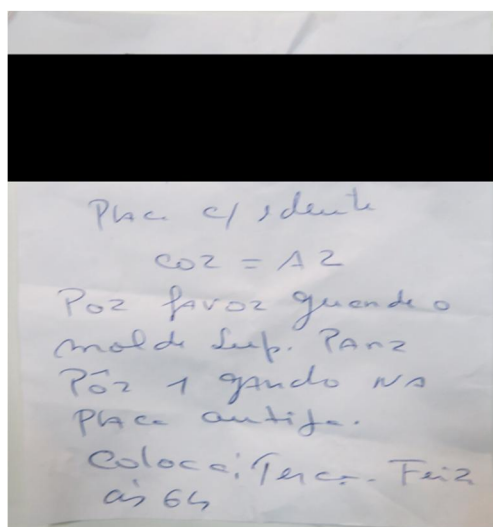 Placa c/ 1 dente
COR = A2
Por favor guarde o
molde sup. Para
Pôr 1 gancho na
Placa antiga.
Coloca: Terça-Feira
às 6h